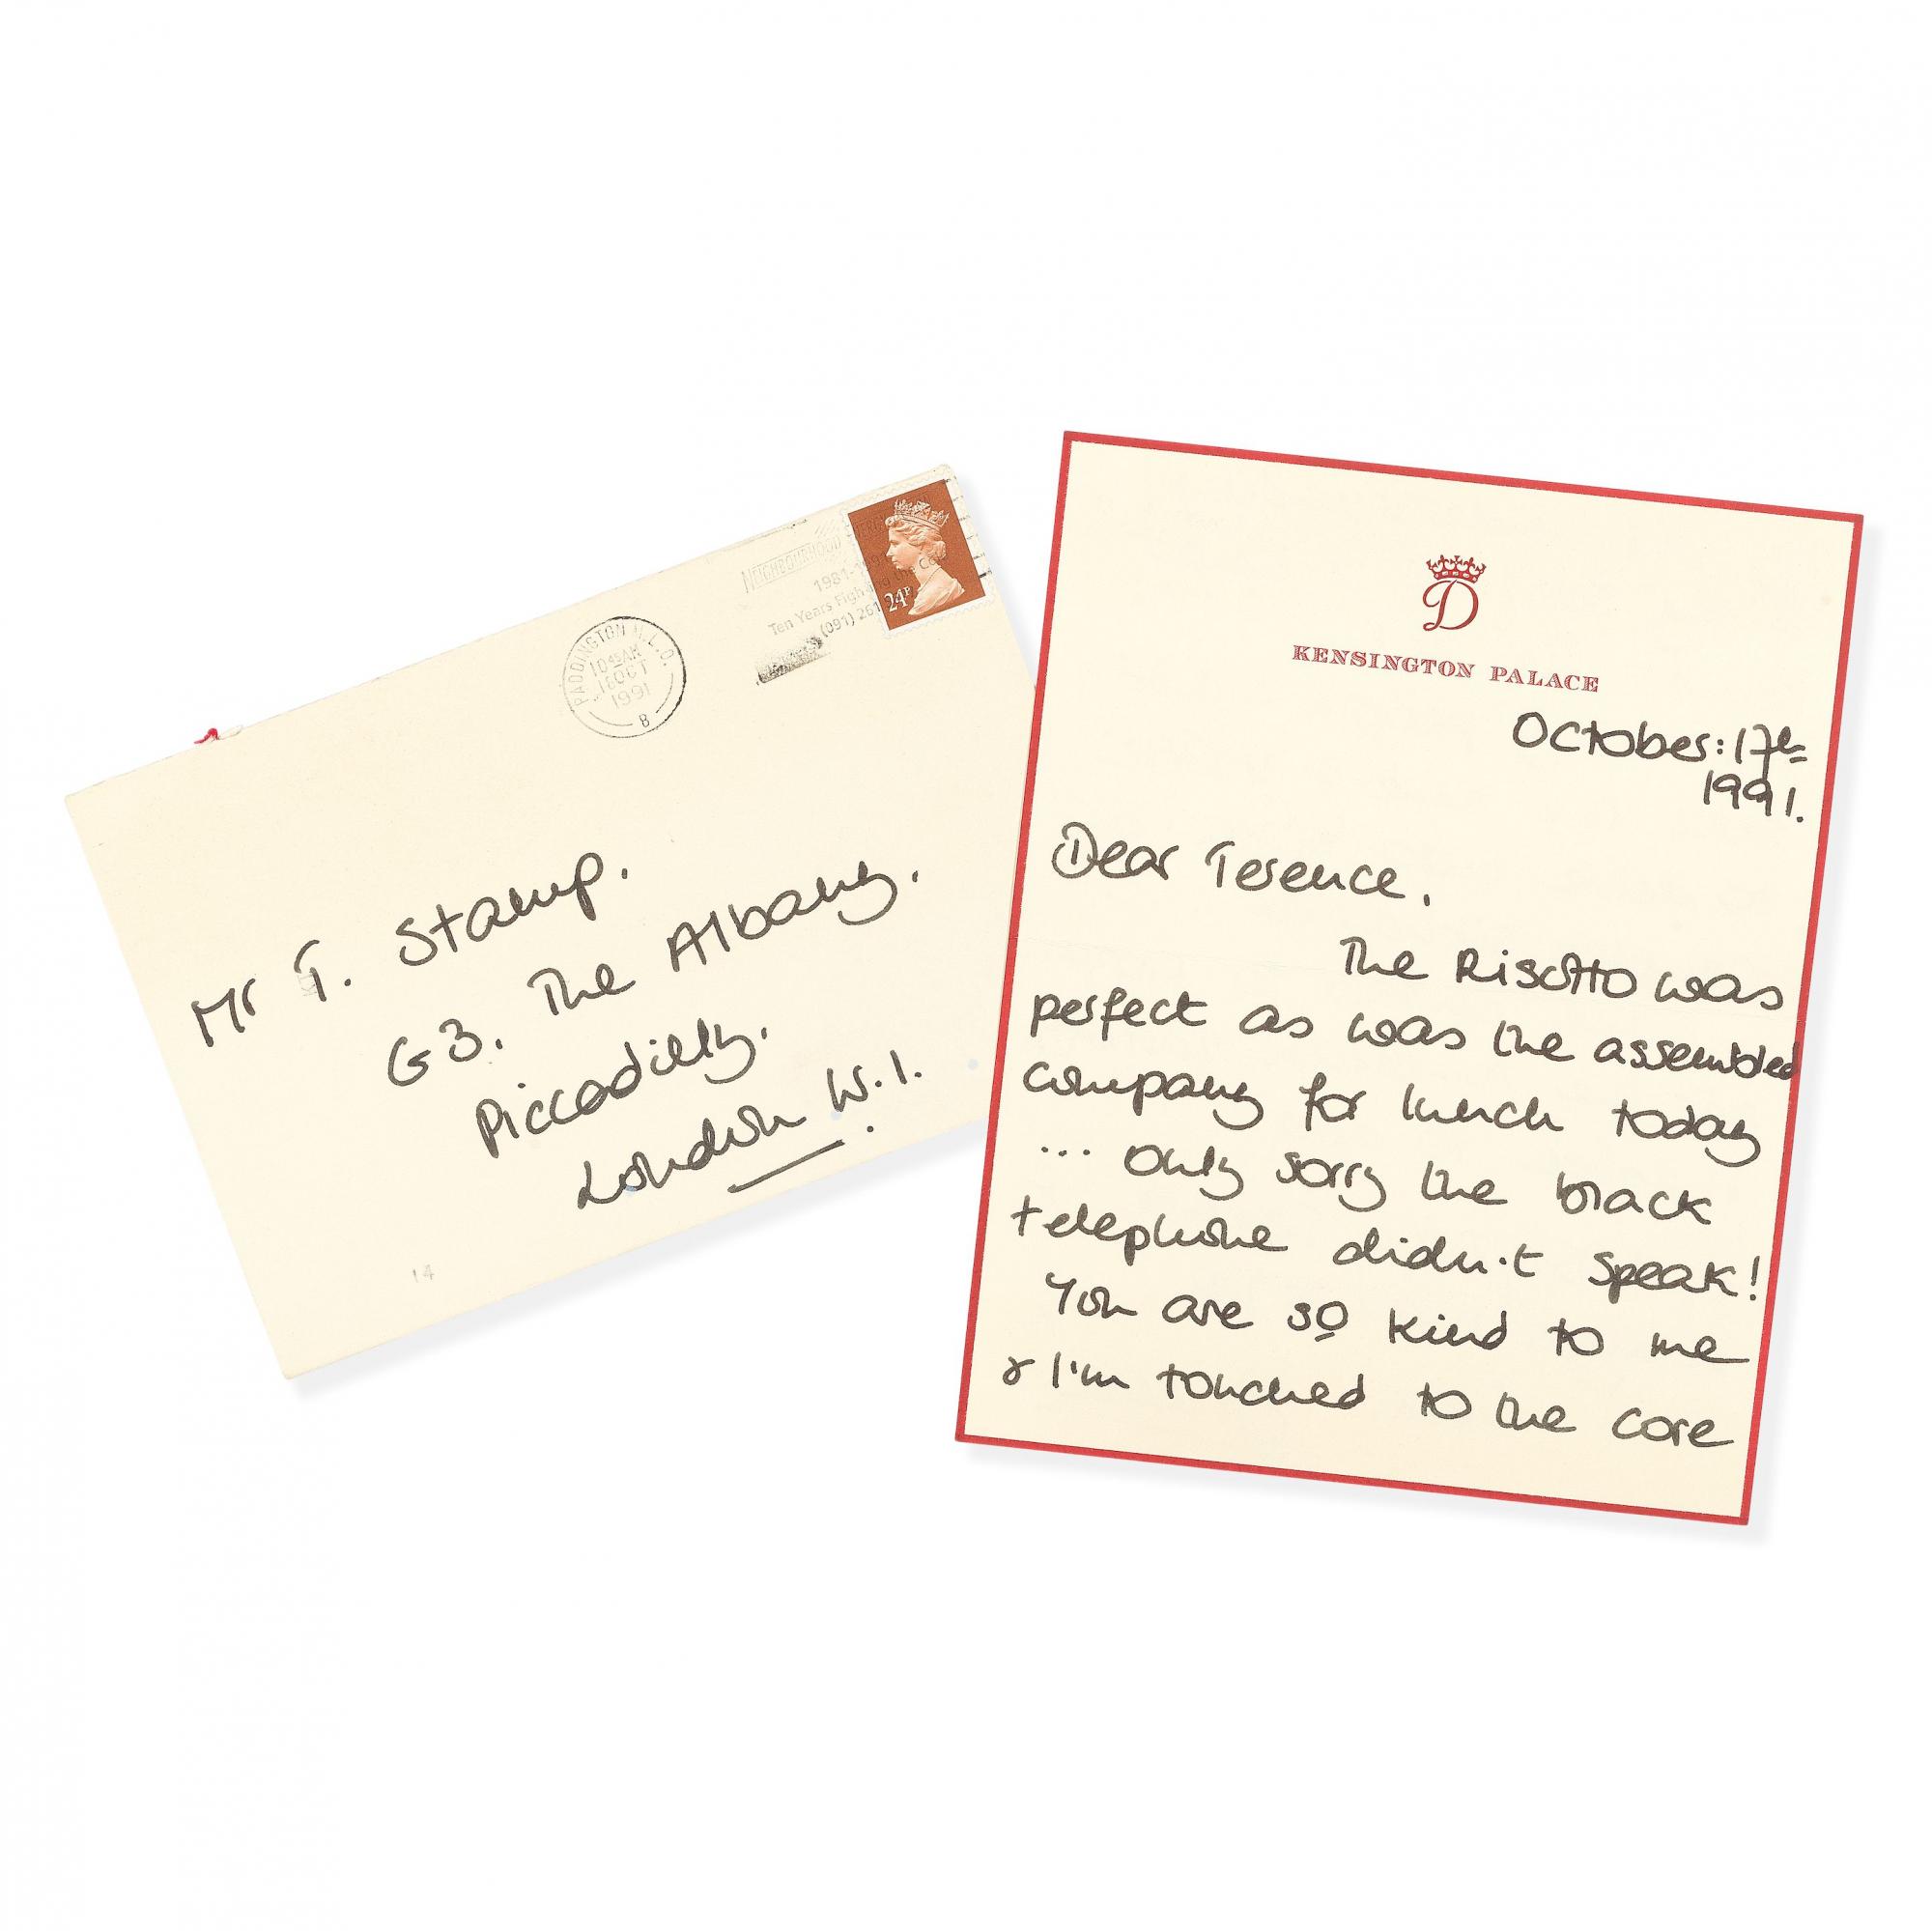 NEIGHBOURHOOD
1981-1991
Ten Years Fighting the C
(091) 261
24P
PADDINGTON M.L.O.
10 45 AM
18 OCT
1991
8
Mr T. Stamp.
G3. The Albany.
Piccadilly.
London W.1.
14
D
KENSINGTON PALACE
October: 17th
1991.
Dear Terence.
The Risotto was
perfect as was the assembled
company for lunch today
... only sorry the black
telephone didn't speak!
You are so kind to me
& I'm touched to the core